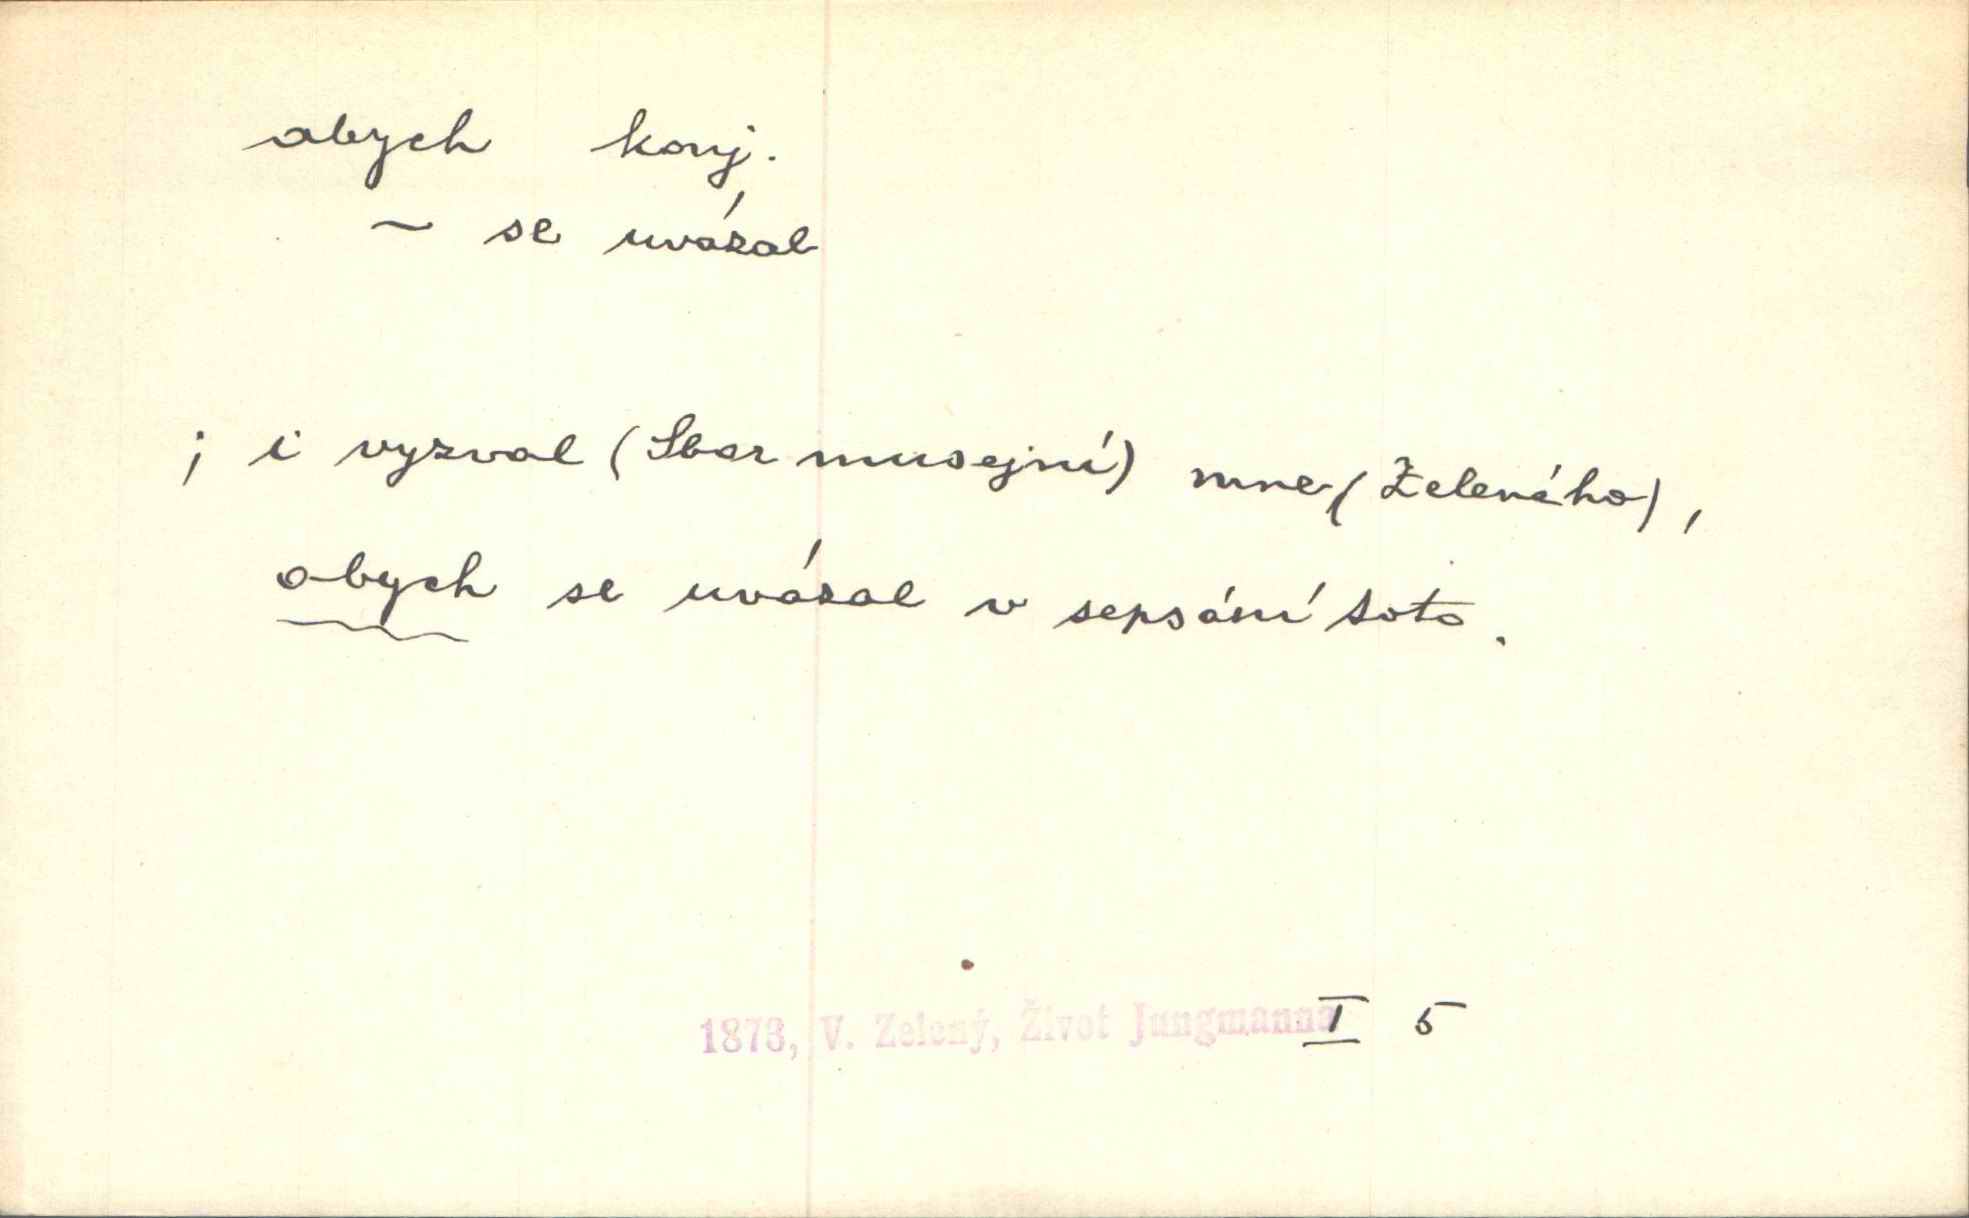 abych konj.
~ se uvázal
; i vyzval (Sbor musejní) mne (Zeleného),
abych se uvázal v sepsání toto.
1873, V. Zelený, Život Jungmanna I 5